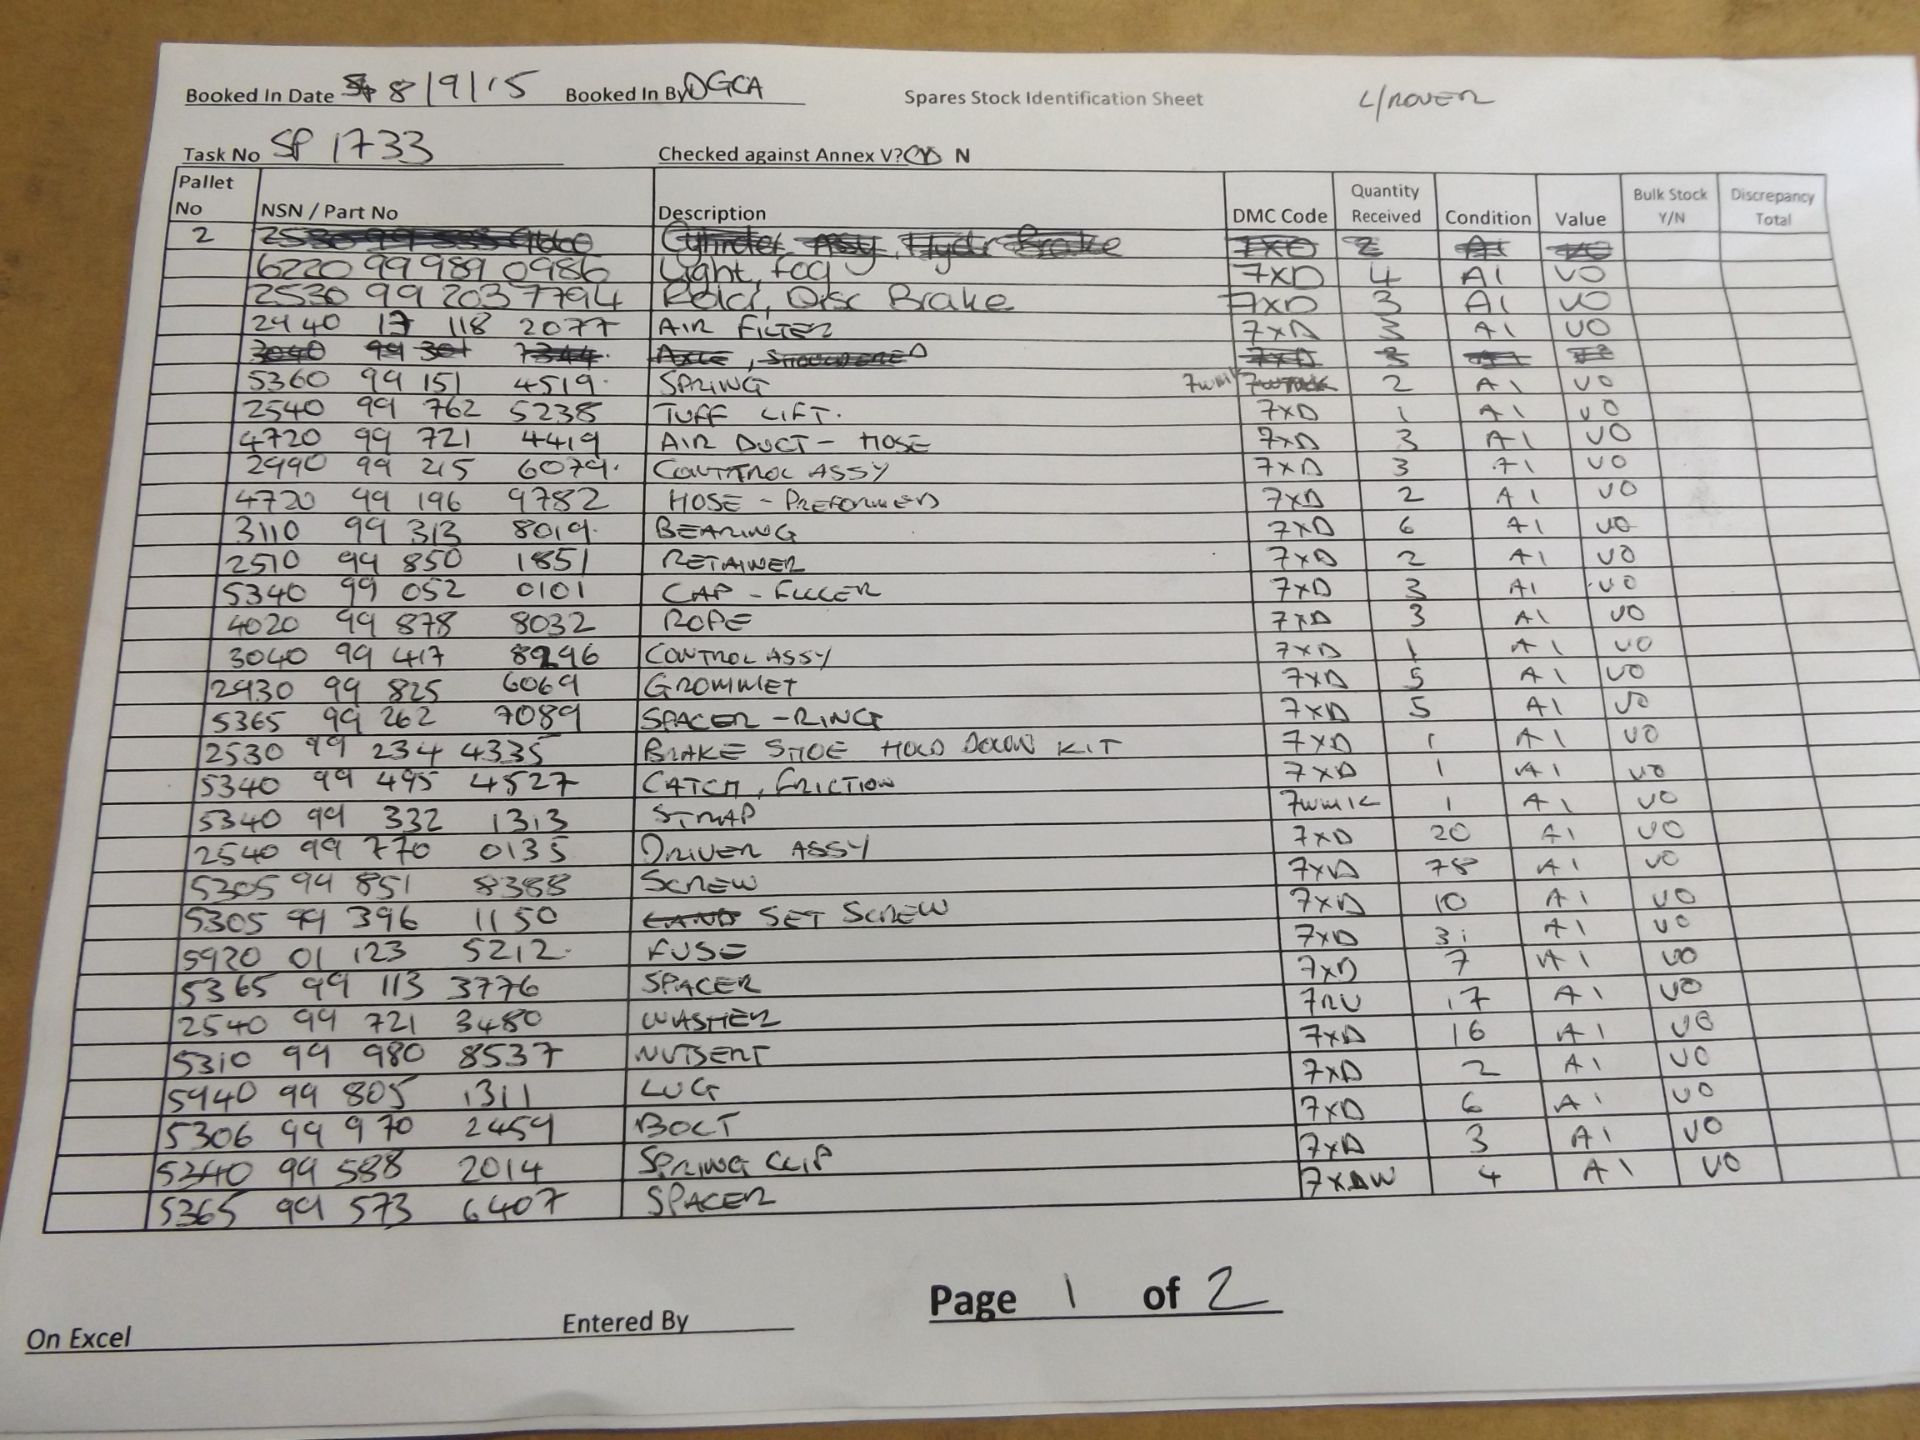 Booked In Date 8/9/15 Booked In By DGCA Spares Stock Identification Sheet L/ROVER
Task No SP 1733 Checked against Annex V? Y N
Pallet No NSN / Part No Description DMC Code Quantity Received Condition Value Bulk Stock Y/N Discrepancy Total
2 Cylinder Assy, Hydr Brake 7XD 2 A1 VO
6220 99 989 0986 Light, Fog 7XD 4 A1 VO
2530 99 203 7794 Disc Brake 7XD 3 A1 VO
2940 17 118 2077 AIR FILTER 7XD 3 A1 VO
3040 99 301 7344 AXLE, SHOULDERED 7XD 3
5360 99 151 4519 SPRING 2 A1 VO
2540 99 762 5238 TUFF LIFT. 7XD 1 A1 VO
4720 99 721 4419 AIR DUCT - HOSE 7XD 3 A1 VO
2990 99 215 6079. CONTTROL ASSY 7XD 3 A1 VO
4720 99 196 9782 HOSE - PREFORMED 7XD 2 A1 VO
3110 99 313 8019. BEARING 7XD 6 A1 VO
2510 99 850 1851 RETAINER 7XD 2 A1 VO
5340 99 052 0101 CAP - FILLER 7XD 3 A1 VO
4020 99 878 8032 ROPE 7XD 3 A1 VO
3040 99 417 8296 CONTROL ASSY 7XD 1 A1 VO
2930 99 825 6069 GROMMET 7XD 5 A1 VO
5365 99 262 7089 SPACER - RING 7XD 5 A1 VO
2530 99 234 4335 BRAKE SHOE HOLD DOWN KIT 7XD 1 A1 VO
5340 99 495 4527 CATCH, FRICTION 7XD 1 A1 VO
5340 99 332 1313 STRAP 7WMIK 1 A1 VO
2540 99 770 0135 DRIVER ASSY 7XD 20 A1 VO
5305 99 851 8388 SCREW 7XD 78 A1 VO
5305 99 396 1150 SET SCREW 7XD 10 A1 VO
5920 01 123 5212. FUSE 7XD 31 A1 VO
5365 99 113 3776 SPACER 7XD 7 A1 VO
2540 99 721 3480 WASHER 7RU 17 A1 VO
5310 99 980 8537 NUTSERT 7XD 16 A1 VO
5940 99 805 1311 LUG 7XD 2 A1 VO
5306 99 970 2459 BOLT 7XD 6 A1 VO
5340 99 588 2014 SPRING CLIP 7XD 3 A1 VO
5365 99 573 6407 SPACER 7XDW 4 A1 VO
Page 1 of 2
On Excel Entered By